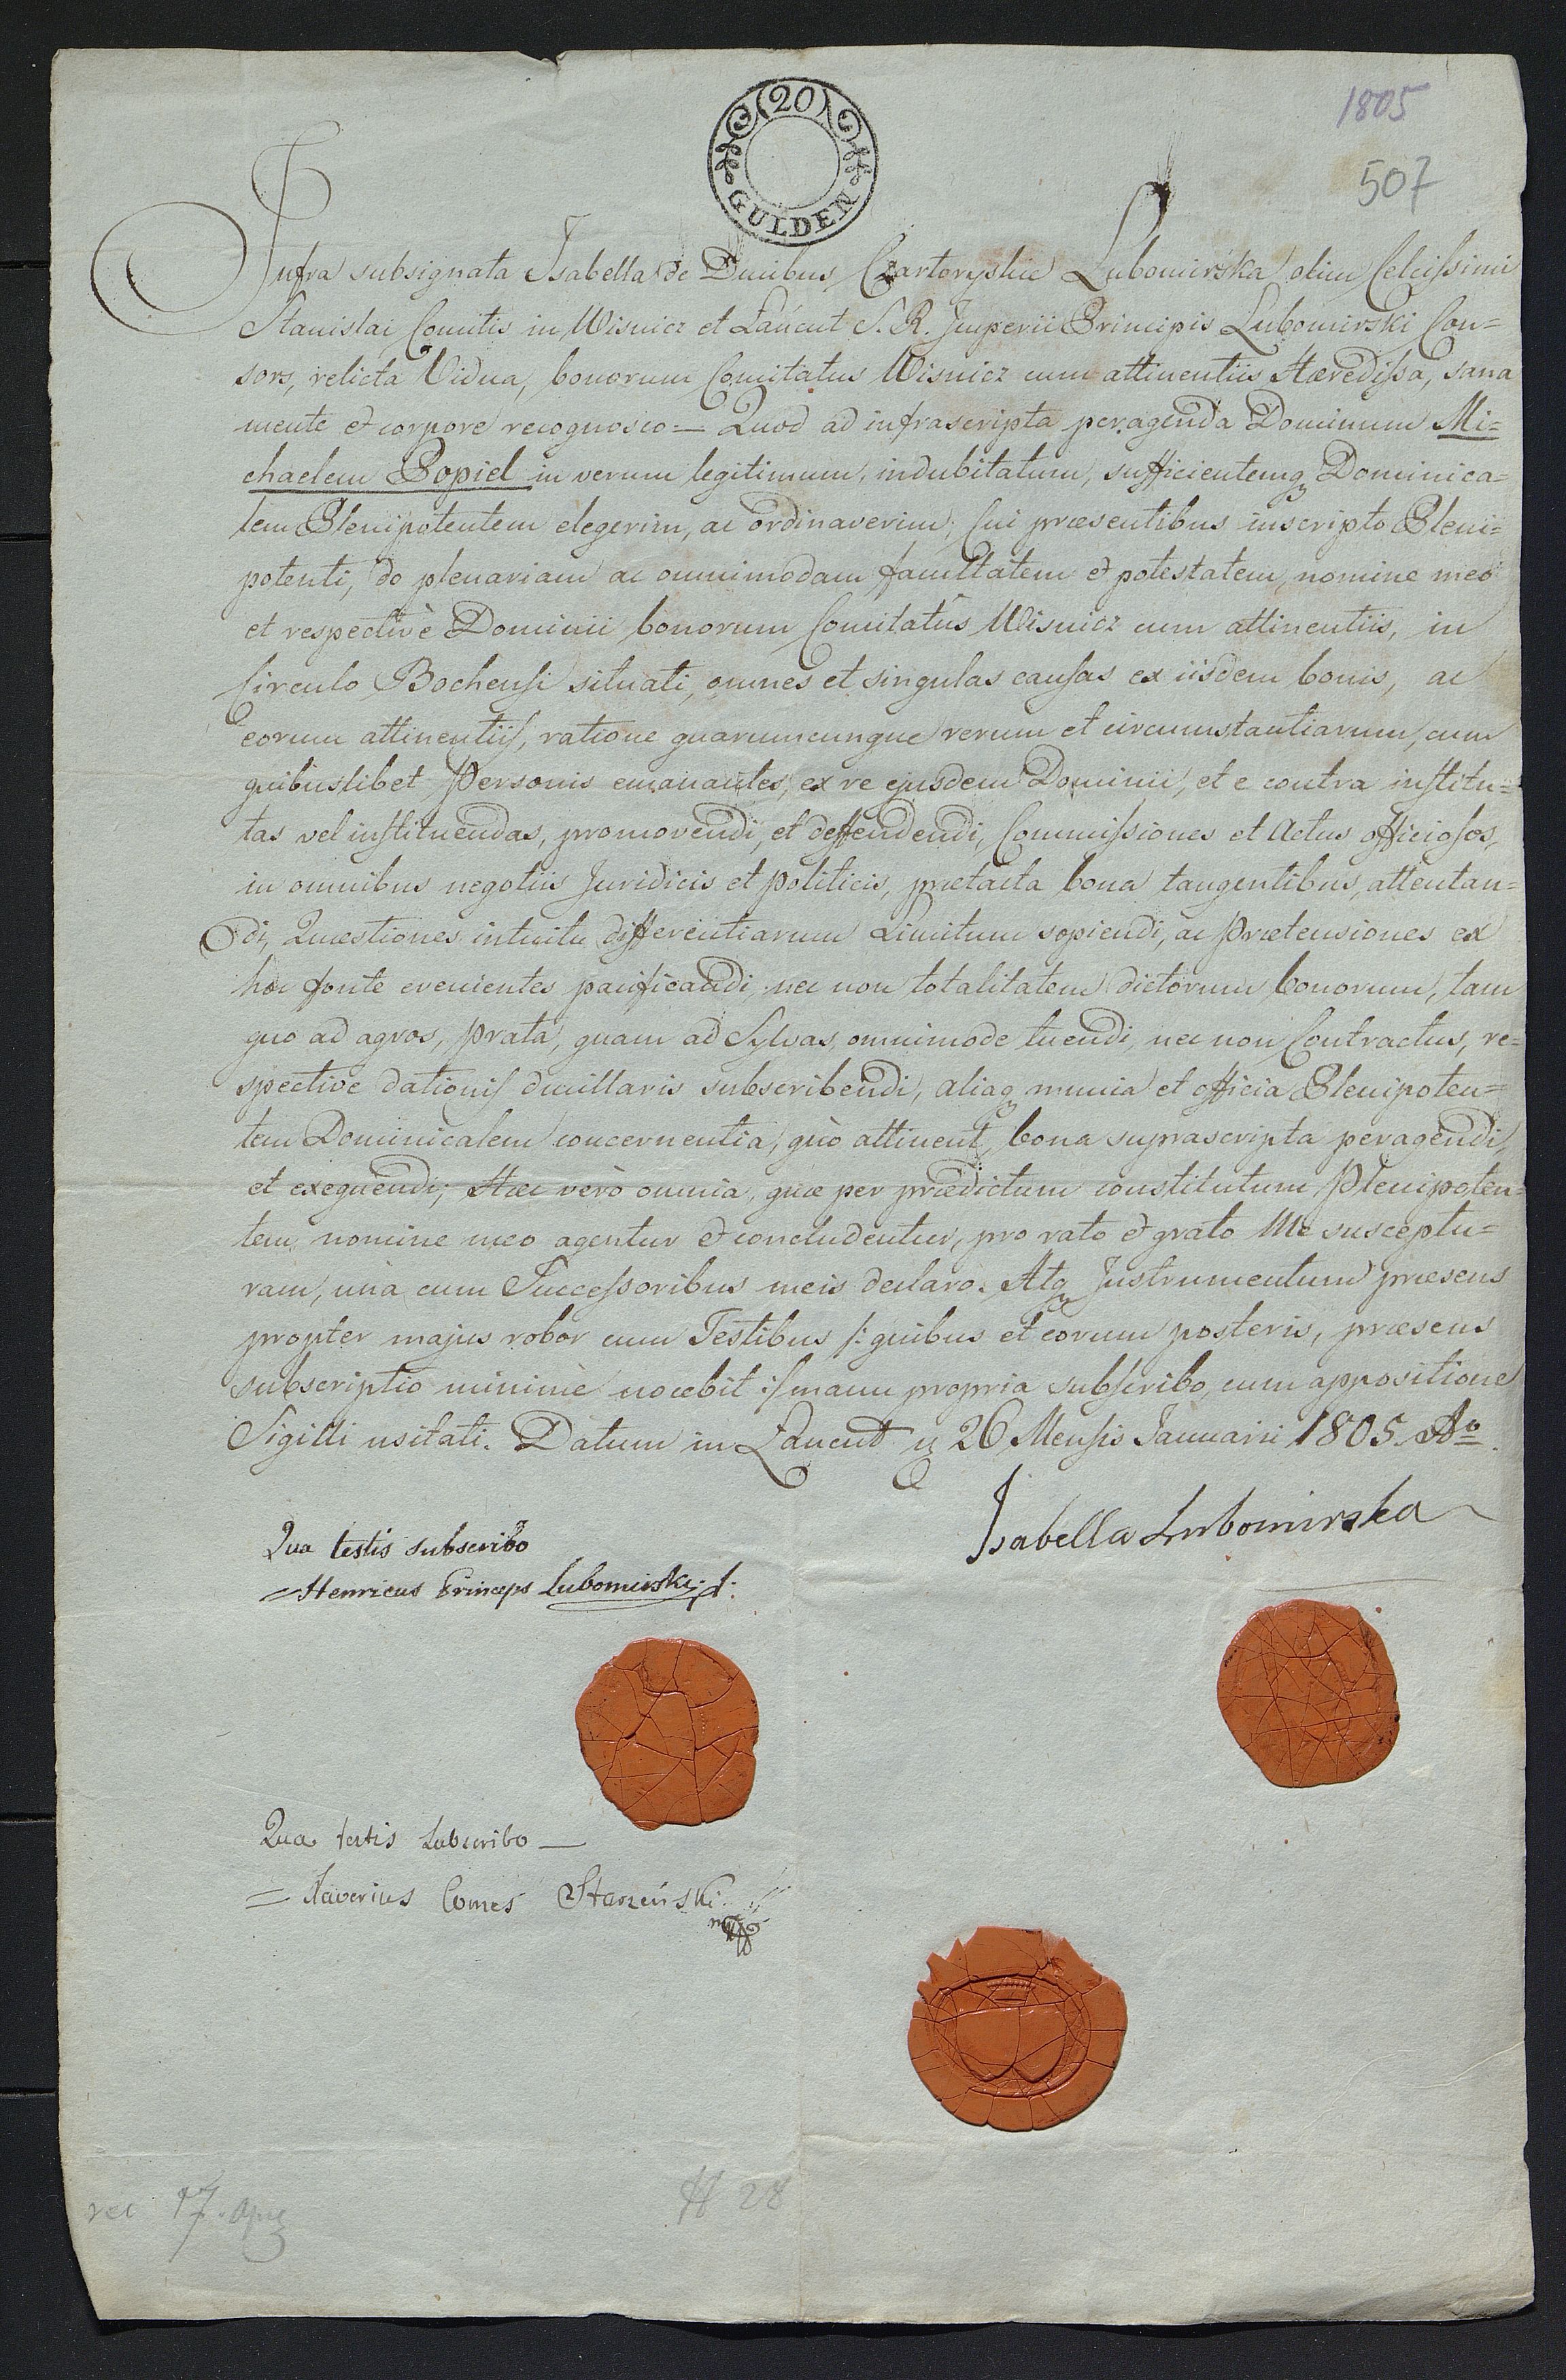 1805
507
20
GULDEN
Infra subsignata Isabella de Ducibus Czartoryskie Lubomirska olim Celsissimi
Stanislai Comitis in Wisnicz et Łańcut S. R. Imperii Principis Lubomirski Con=
sors, relicta Vidua, bonorum Comitatus Wisnicz cum attinentiis Hæredissa, sana
mente et corpore recognosco= Quod ad infrascripta peragenda Dominum Mi=
chaelem Popiel in verum legitimum, indubitatum, sufficientemq Dominica=
lem Plenipotentem elegerim, ac ordinaverim; Cui præsentibus inscripto Pleni=
potenti, do plenariam ac omnimodam facultatem et potestatem, nomine meo
et respectivè Dominii bonorum Comitatûs Wisnicz cum attinentiis, in
Circulo Bochensi situati, omnes et singulas causas ex iisdem bonis, ac
eorum attinentiis, ratione quarumcunque rerum et circumstantiarum, cum
quibuslibet Personis emanantes, ex re ejusdem Dominii, et e contra institu=
tas vel instituendas, promovendi, et deffendendi, Commissiones et Actus officiosos,
in omnibus negotiis Juridicis et politicis, prætacta bona tangentibus, attentan=
di, Quæstiones intuitu differentiarum Limitum sopiendi, ac prætensiones ex
hoc fonte evenientes pacificandi, nec non totalitatem dictorum bonorum, tam
quo ad agros, prata, quam ad Sylvas, omnimode tuendi, nec non Contractus, re=
spective dationis ducillaris subscribendi, aliaq munia et officia Plenipoten=
tem Dominicalem concernentia, quò attinent, bona suprascripta peragendi,
et exequendi; Hæc verò omnia, quæ per prædictum constitutum Plenipoten=
tem, nomine meo agentur et concludentur, pro rato et grato Me susceptu=
ram, unà cum Successoribus meis declaro. Atq Instrumentum præsens
propter majus robor cum Testibus /: quibus et eorum posteris, præsens
subscriptio minimè nocebit :/ manu propria subscribo, cum appositione
Sigilli usitati. Datum in Łancut 26 Mensis Januarii 1805 Ao
Isabella Lubomirska
Qua testis subscribo
=Henricus Princeps Lubomirski
Qua testis subscribo—
= Xaverius Comes Starzeński
rec 17.
28